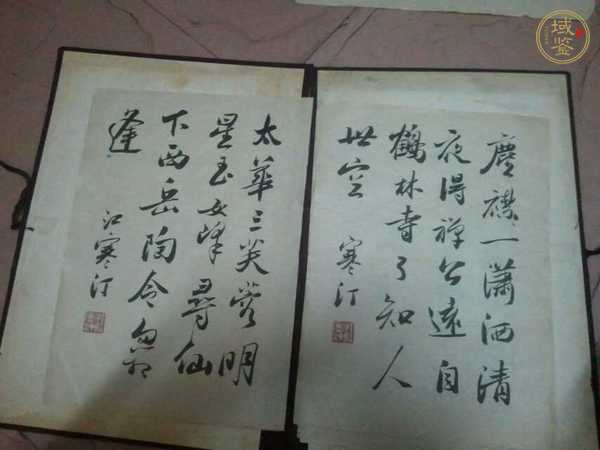 塵襟一瀟洒清
夜得禅公遠自
鶴林寺了知人
世空
寒汀
太華三芙蓉明
星玉女峰尋仙
下西岳陶令忽相
逢
江寒汀
域鉴